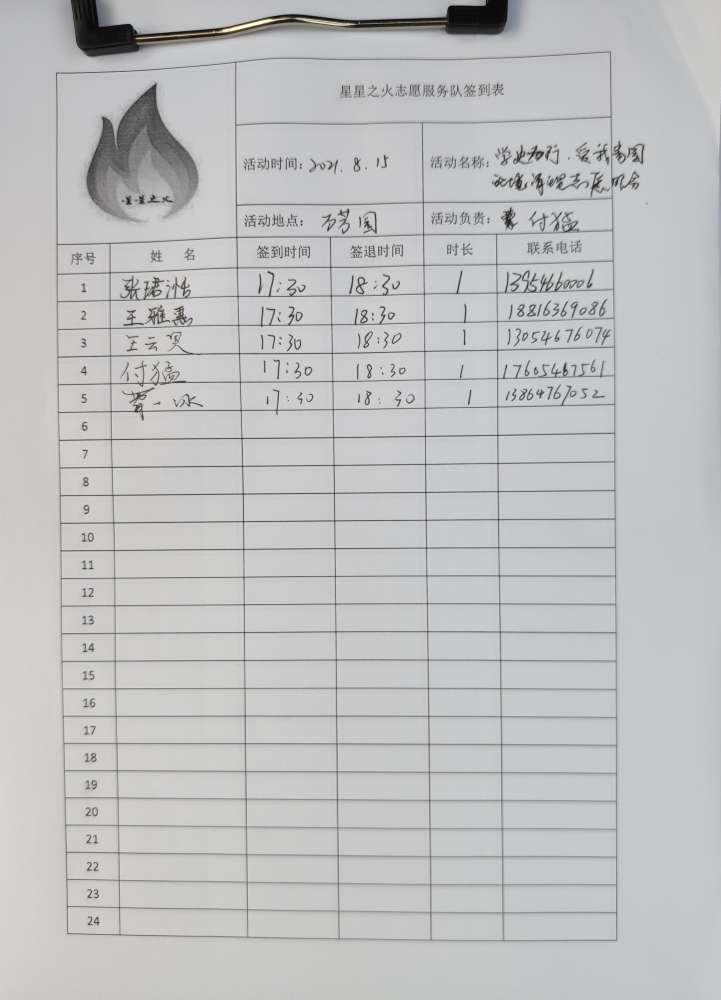 星星之火志愿服务队签到表
星星之火
活动时间：2021.8.15
活动名称：学史力行.爱我
志愿
活动地点：万芳园
活动负责：付猛
序号 姓 名 签到时间 签退时间 时长 联系电话
1 张珺浩 17:30 18:30 1 13954660006
2 王雅惠 17:30 18:30 1 18816369086
3 王云 17:30 18:30 1 13054676074
4 付猛 17:30 18:30 1 17605467561
5 一冰 17:30 18:30 1 13864767052
6
7
8
9
10
11
12
13
14
15
16
17
18
19
20
21
22
23
24